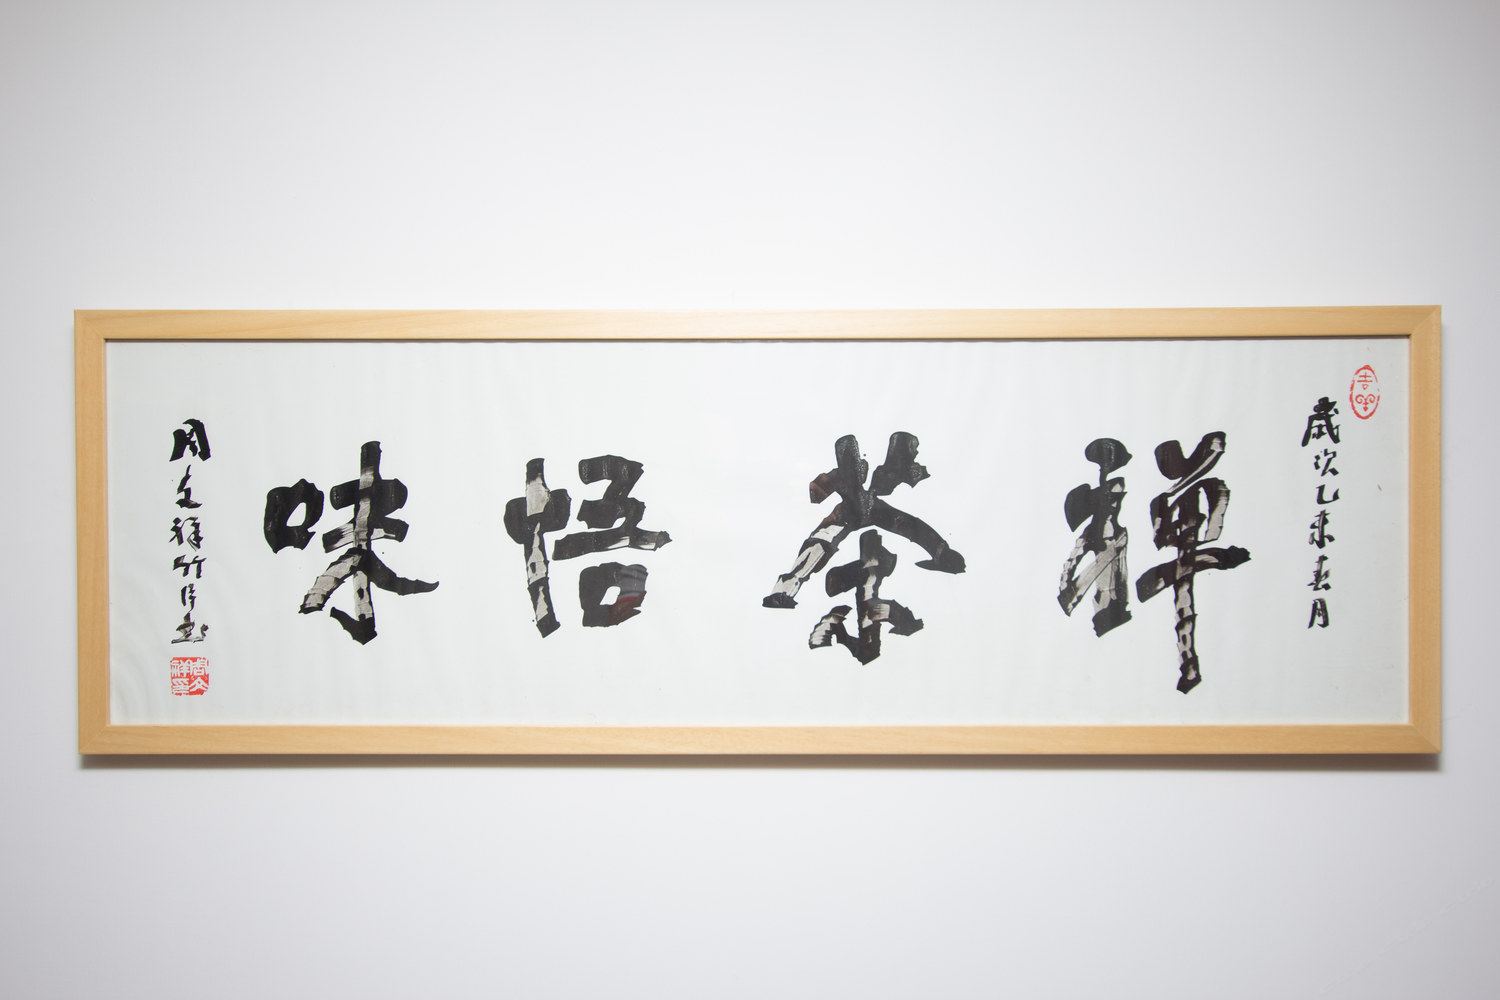 歲次乙未春月
禪茶悟味
周文祥